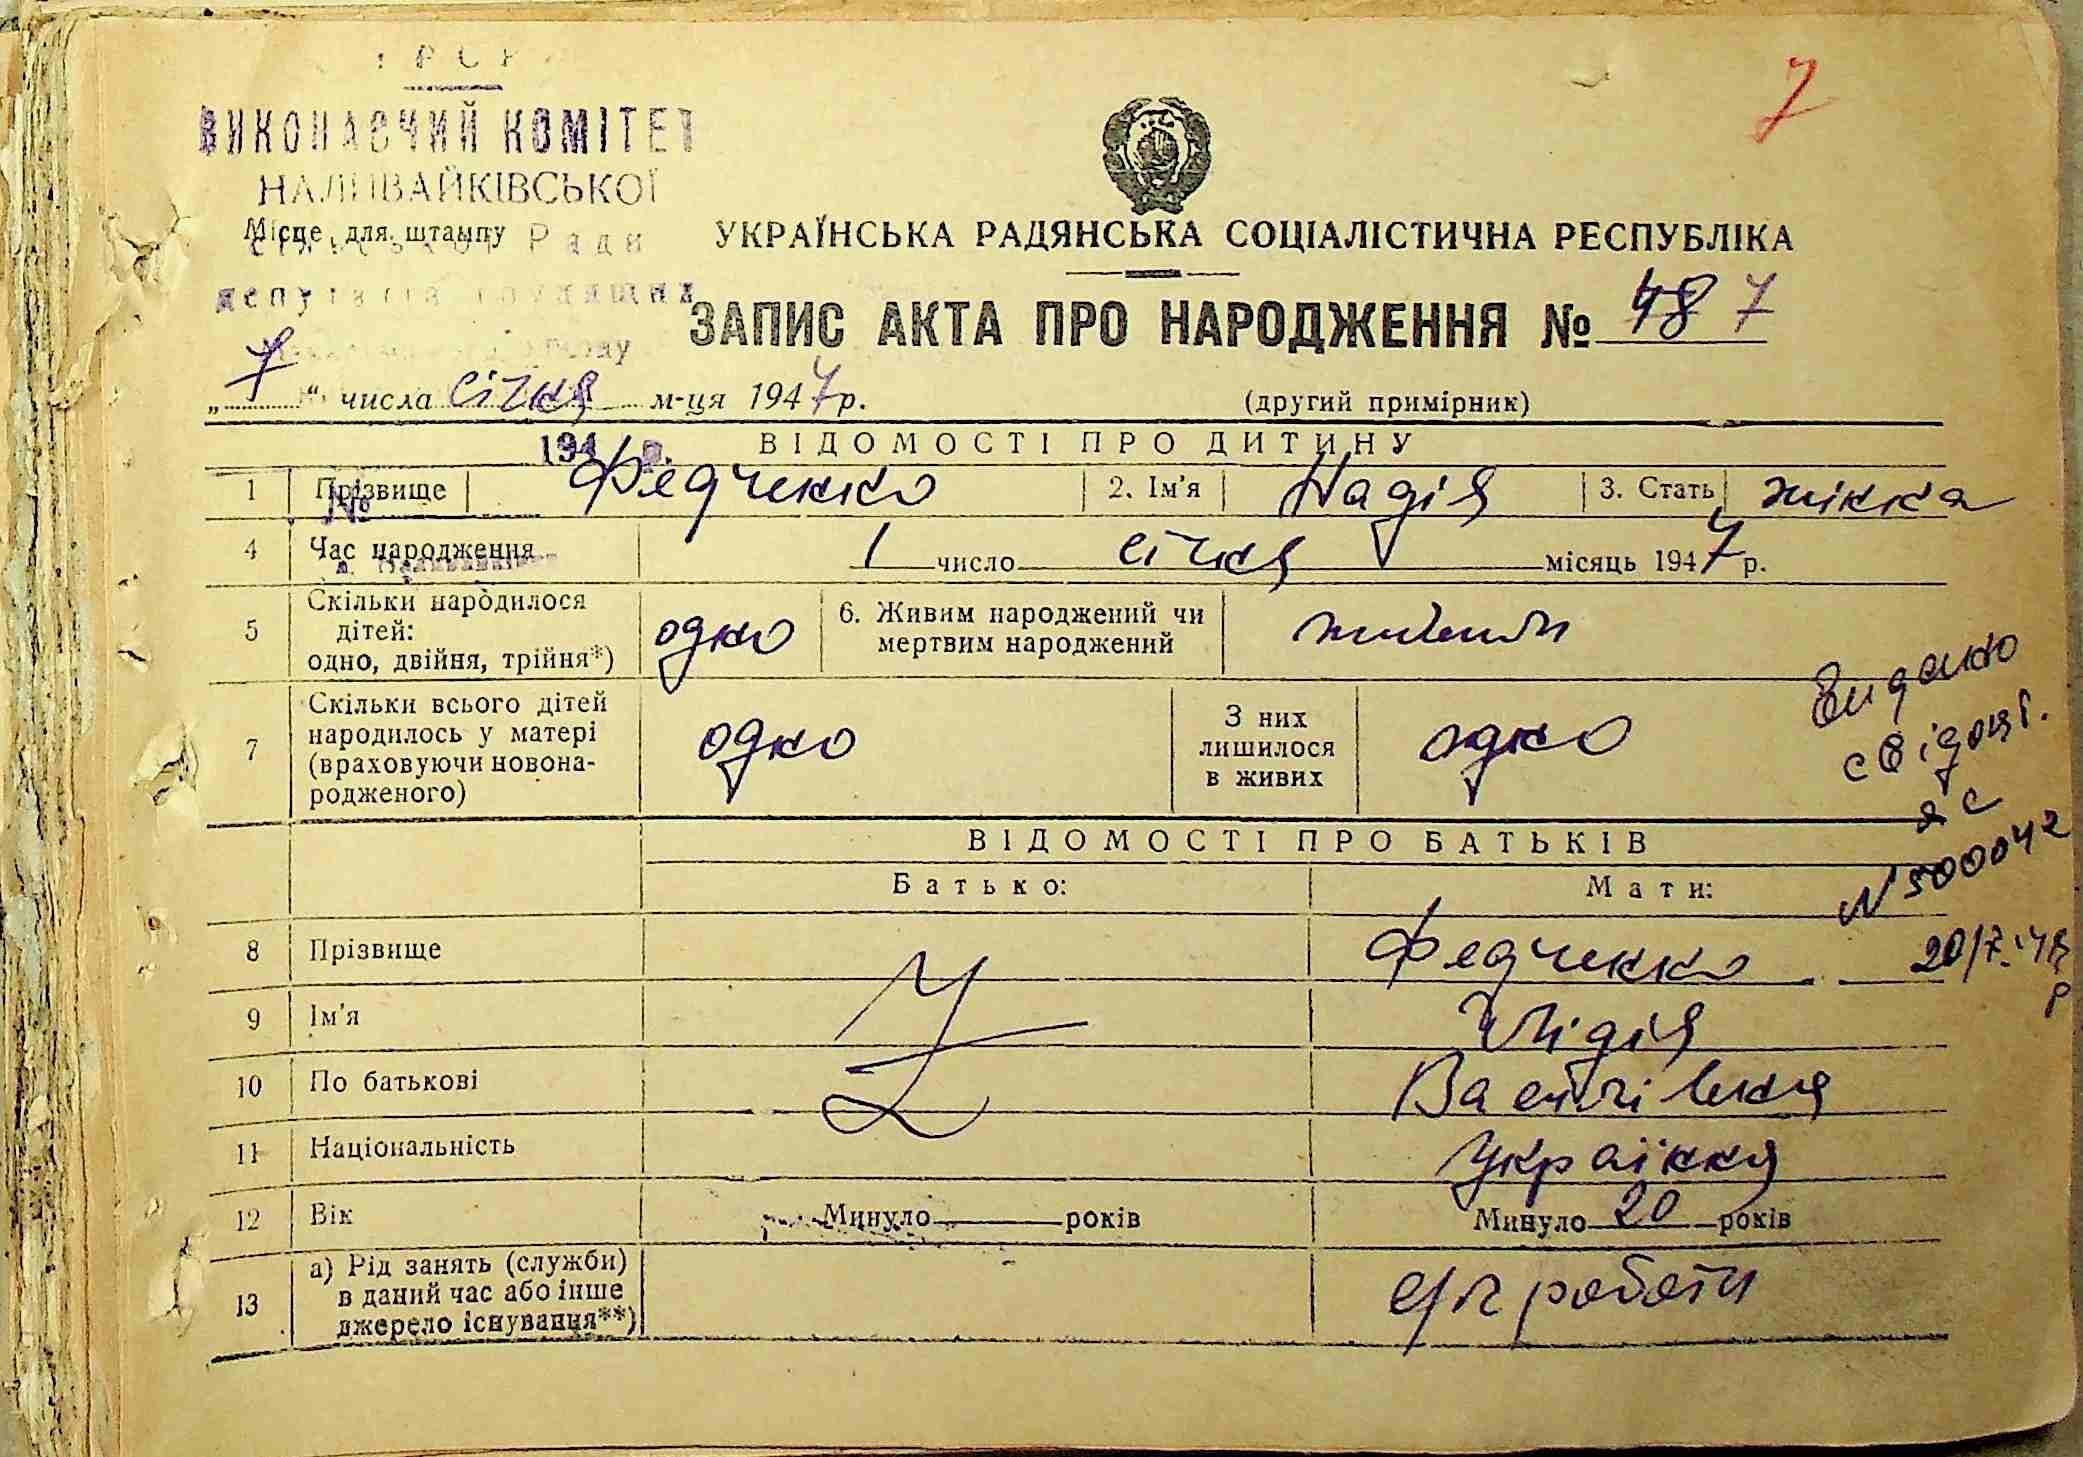 УРСР
ВИКОНАВЧИЙ КОМІТЕТ
НАЛИВАЙКІВСЬКОЇ
Місце для штампу
сільської Ради
депутатів трудящих
7
УКРАЇНСЬКА РАДЯНСЬКА СОЦІАЛІСТИЧНА РЕСПУБЛІКА
ЗАПИС АКТА ПРО НАРОДЖЕННЯ № 7
„7“ числа січня м-ця 1947 р. (другий примірник)
194 р. ВІДОМОСТІ ПРО ДИТИНУ
1 Прізвище Федченко 2. Ім'я Надія 3. Стать жінка
№
4 Час народження 1 число січня місяць 1947 р.
5 Скільки народилося дітей: одно, двійня, трійня*) одно 6. Живим народжений чи мертвим народжений живим
7 Скільки всього дітей народилось у матері (враховуючи новона-родженого) одно З них лишилося в живих одно
Видано
свідоцт.
ЯС
N 500042
20/7.48
р
ВІДОМОСТІ ПРО БАТЬКІВ
Батько: Мати:
8 Прізвище Федченко
9 Ім'я Лідія
10 По батькові Василівна
11 Національність Українка
12 Вік Минуло років Минуло 20 років
13 а) Рід занять (служби) в даний час або інше джерело існування**) с/г роботи